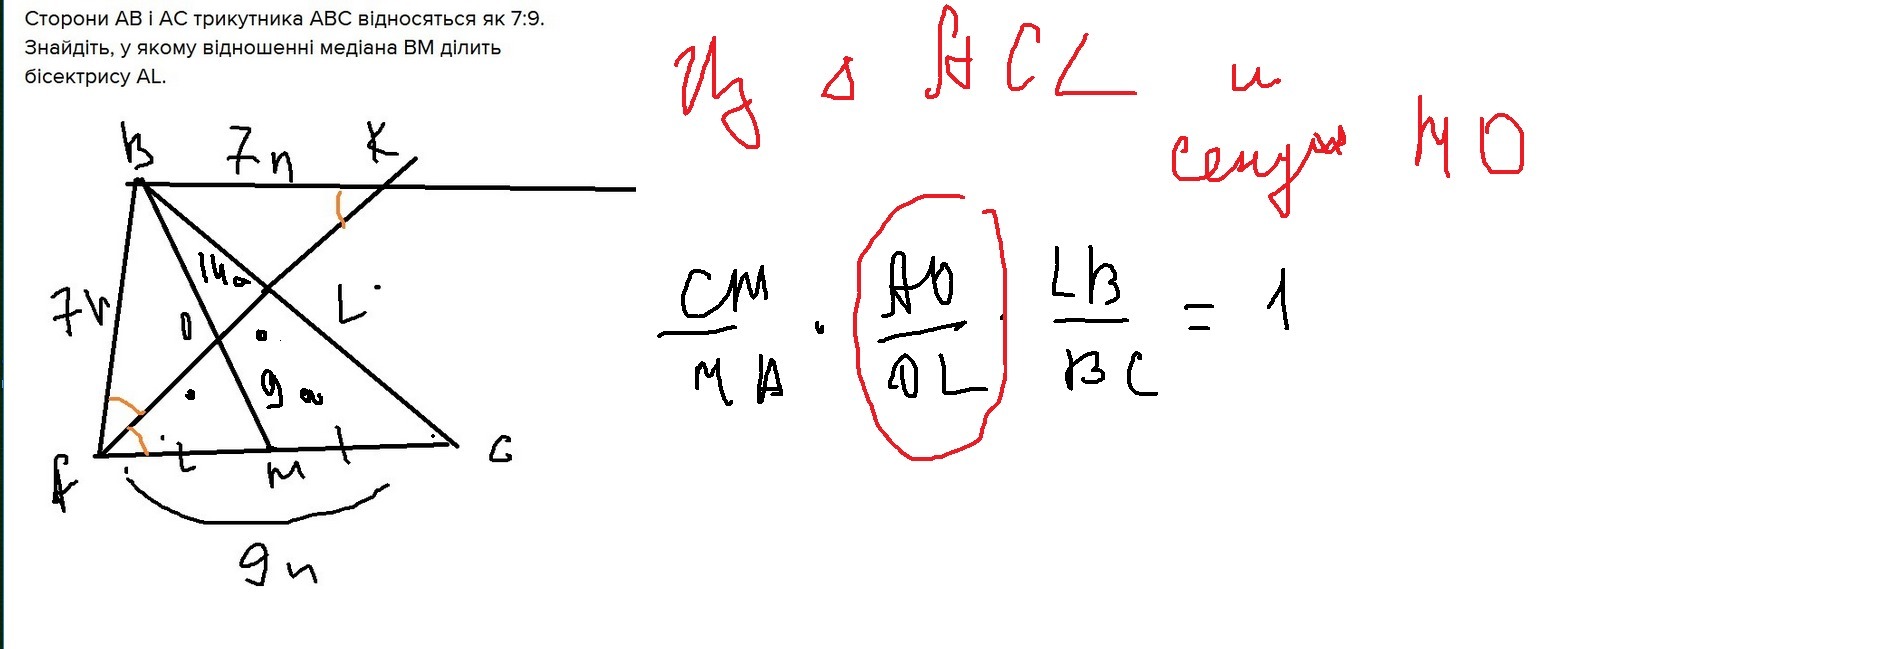 Сторони AB і AC трикутника ABC відносяться як 7:9.
Знайдіть, у якому відношенні медіана BM ділить
бісектрису AL.
Из Δ ACL и
секущая MO
B 7n K
7n 14a L
O
9a
A M C
9n
CM/MA · AO/OL · LB/BC = 1